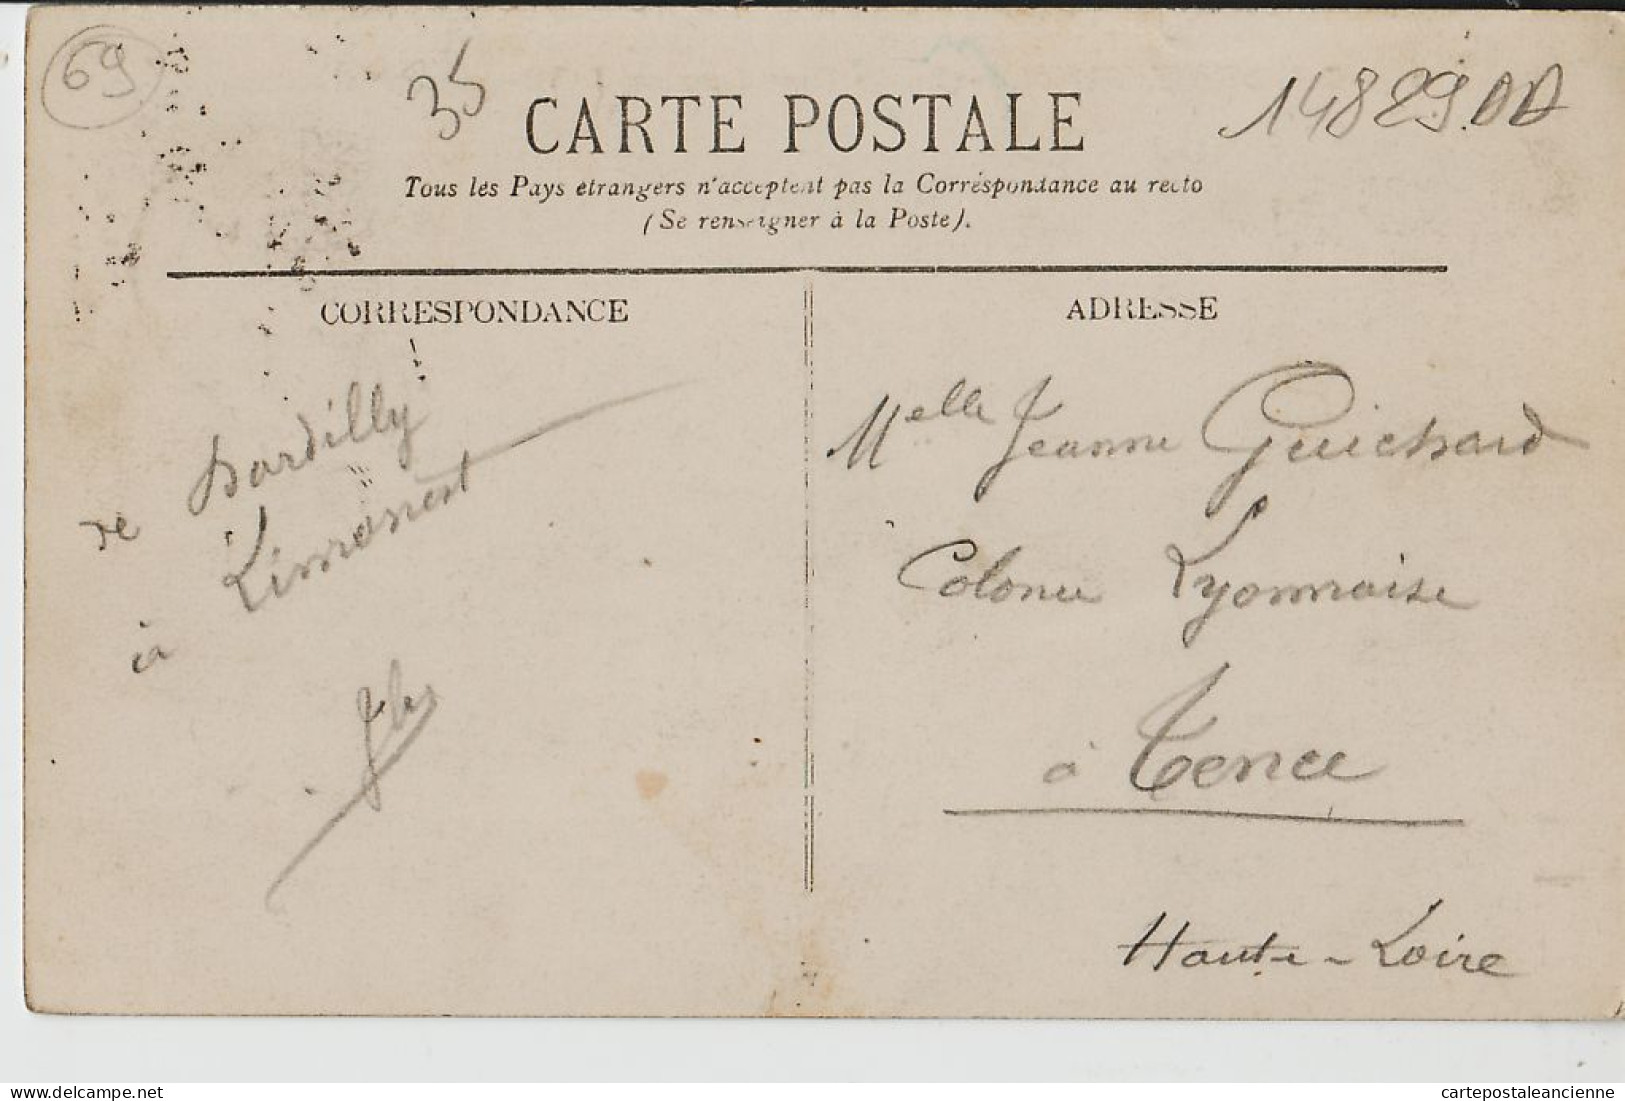 69
35
14829 AA
CARTE POSTALE
Tous les Pays étrangers n'acceptent pas la Correspondance au recto
(Se renseigner à la Poste).
CORRESPONDANCE
ADRESSE
de Dardilly
à Limonest
Melle Jeanne Guichard
Colonie Lyonnaise
à Tence
Haute-Loire
delcampe.net
cartepostaleancienne